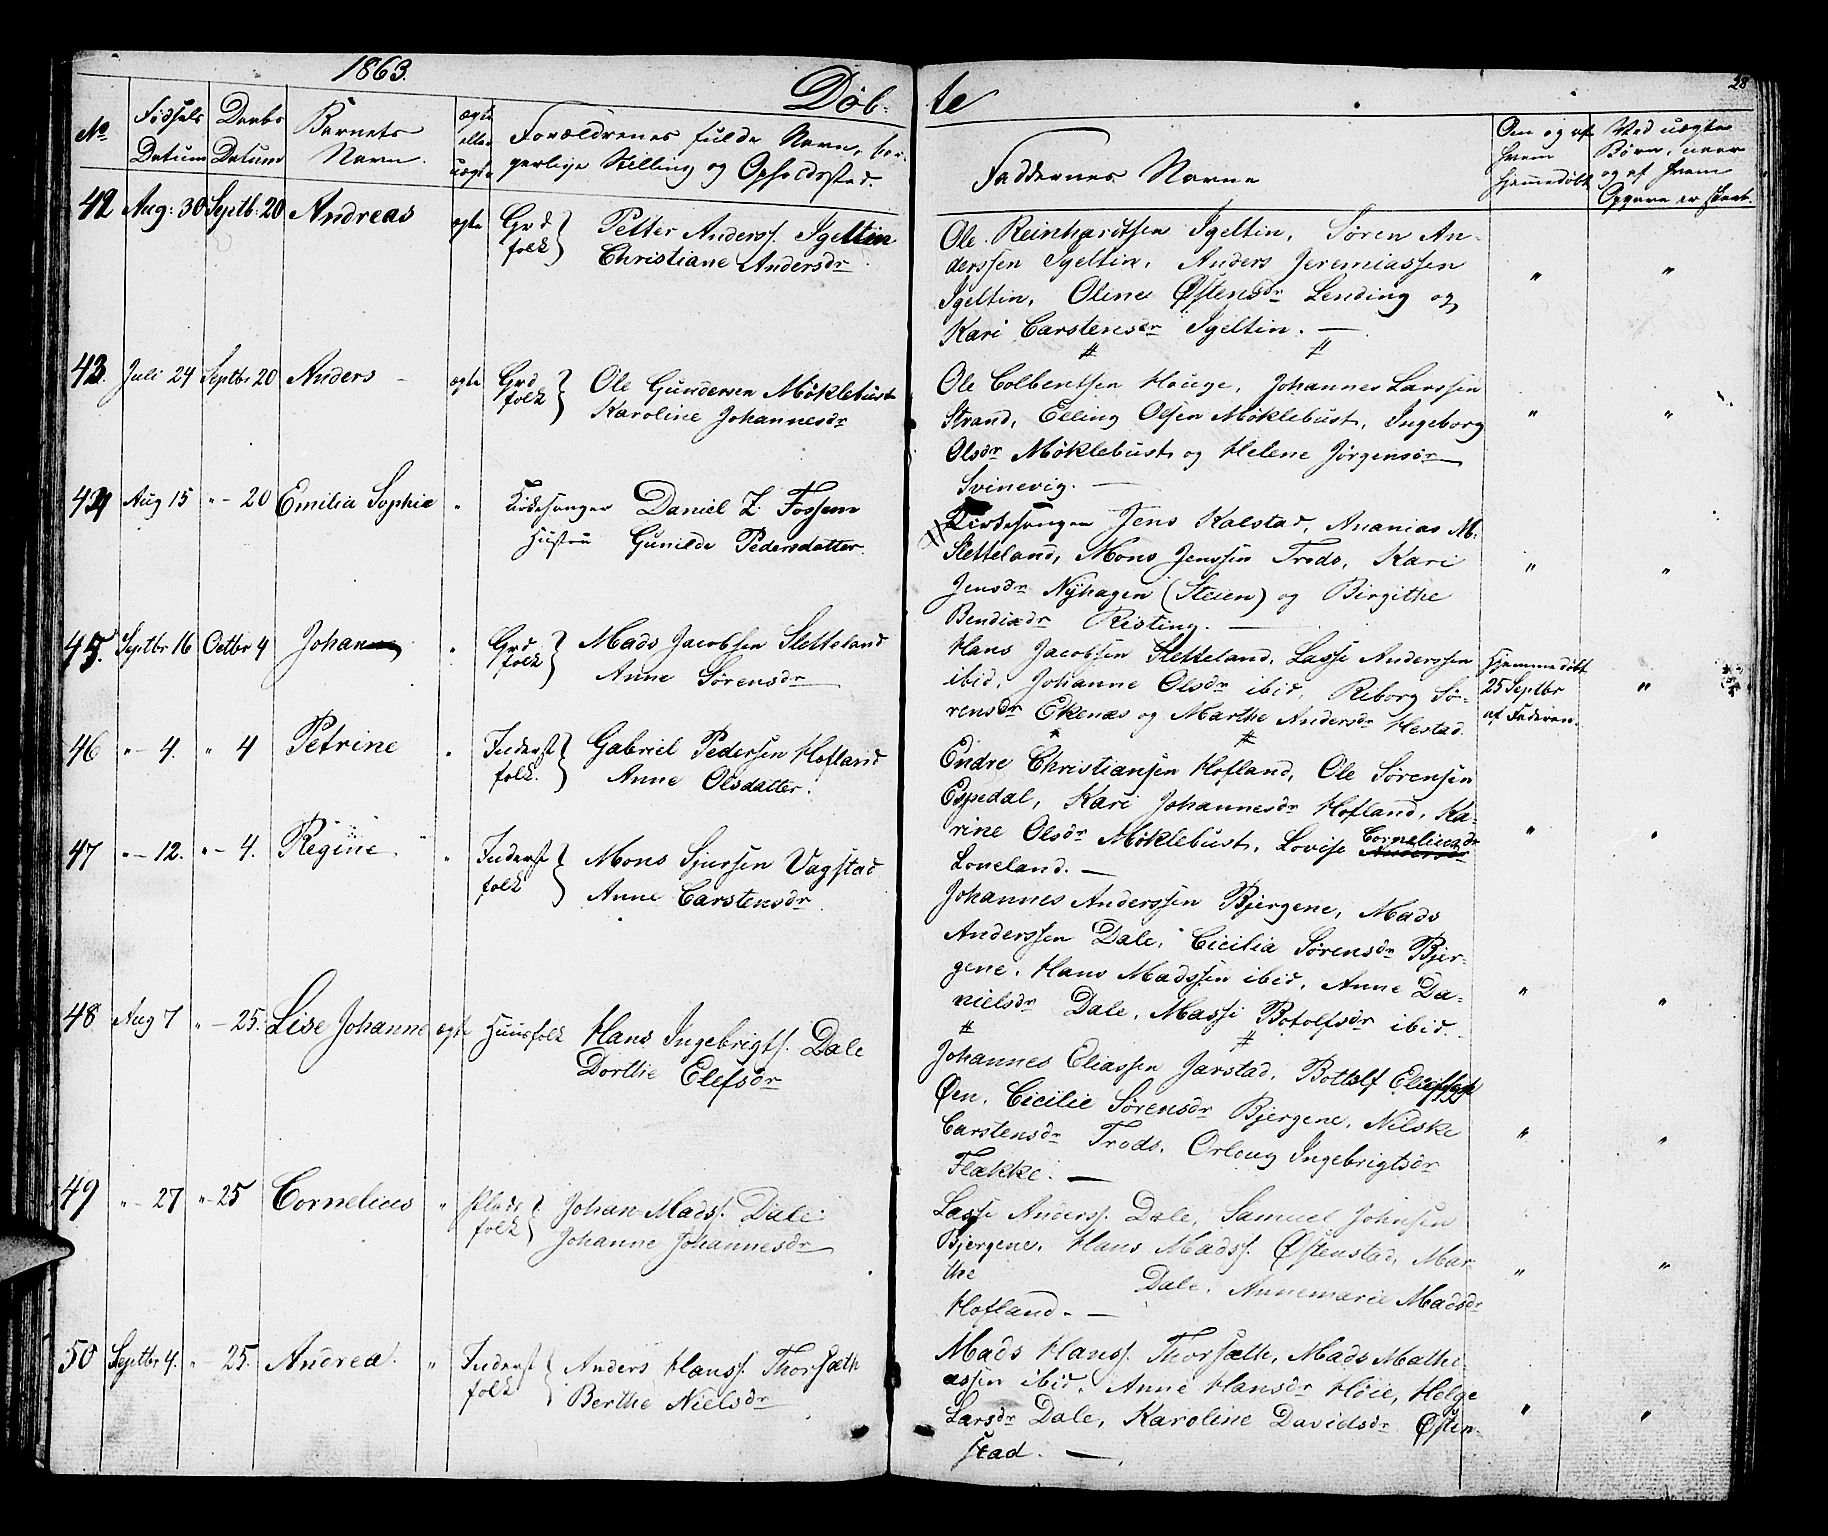 1863.
Døb-
te
28
No
Fødsels
Datum
Daabs
Datum
Barnets
Navn.
ægte
eller
uægte
Forældrenes fulde Navn, bor-
gerlige Stilling og Opholdssted.
Faddernes Navne
Om og af
hvem
hjemmedøbt
Ved uægte
Børn, naar
og af hvem
Opgave er skeet.
42 Aug: 30 Septb: 20 Andreas ægte Grd folk } Petter Anderss. Igeltin
Christiane Andersdr
Ole Reinhardtsen Igeltin, Søren An-
derssen Igeltin, Anders Jeremiassen
Igeltin, Oline Østensdr Lending og
Kari Carstensdr Igeltin. —
" "
43. Juli 24 Septbr 20 Anders ægte Grd folk } Ole Gundersen Møklebust
Karoline Johannesdr
Ole Colbentsen Houge, Johannes Larssen
Strand, Elling Olsen Møklebust, Ingeborg
Olsdr Møklebust og Helene Jørgensdr
Svinevig. —
" "
44 Aug 15 " - 20 Emilia Sophie " Kirkesanger Daniel Z. Fossum
Hustru Gunilde Pedersdatter.
Kirkesanger Jens Kalstad, Ananias M.
Sletteland, Mons Jenssen Trods, Kari
Jensdr Nyhagen (Steien) og Birgithe
Bendixdr Risting. —
" "
45. Septbr 16 Octbr 4 Johan " Grd folk } Mads Jacobsen Sletteland
Anne Sørensdr
Hans Jacobsen Sletteland, Lasse Anderssen
ibid, Johanne Olsdr ibid, Reborg Sø-
rensdr Ekenæs og Marthe Andersdr Hestad.
Hjemmedøbt
25 Septbr
af Faderen.
"
46 " - 4. " 4 Petrine " Inderst folk. } Gabriel Pedersen Hofland
Anne Olsdatter.
Endre Christiansen Hofland, Ole Sørensen
Espedal, Kari Johannesdr Hofland, Ka-
rine Olsdr Møklebust, Lovise Corneliusdr
Loneland. —
" "
47 " - 12. " - 4. Regine " Inderst folk } Mons Sjurssen Vagstad
Anne Carstensdr
Johannes Anderssen Bjergene, Mads
Anderssen Dale, Cicilia Sørensdr Bjer-
gene, Hans Madssen ibid, Anne Da-
nielsdr Dale, Massi Botolfsdr ibid.
" "
48 Aug 7 " - 25. Lise Johanne ægte Huusfolk Hans Ingebrigts. Dale
Dorthe Elefsdr
Johannes Eliassen Jarstad, Bottolf
Øen, Cicilie Sørensdr Bjergene, Nilske
Carstensdr Trods, Orloug Ingebrigtsdr
Flekke. —
" "
49 " - 27 " - 25 Cornelius " Plads folk } Johan Madss. Dale
Johanne Johannesdr
Lasse Anderss. Dale, Samuel Johnsen
Bjergene, Hans Madss. Østenstad, Mar-
the Dale, Annemarie Madsdr
Hofland. —
" "
50 Septbr 4. " - 25. Andrea. " Inderst folk } Anders Hanss. Thorsæth
Berthe Nielsdr
Mads Hanss. Thorsæth, Mads Mathi-
assen ibid, Anne Hansdr Høie, Helge
Larsdr Dale, Karoline Davidsdr Østen-
stad. —
" "